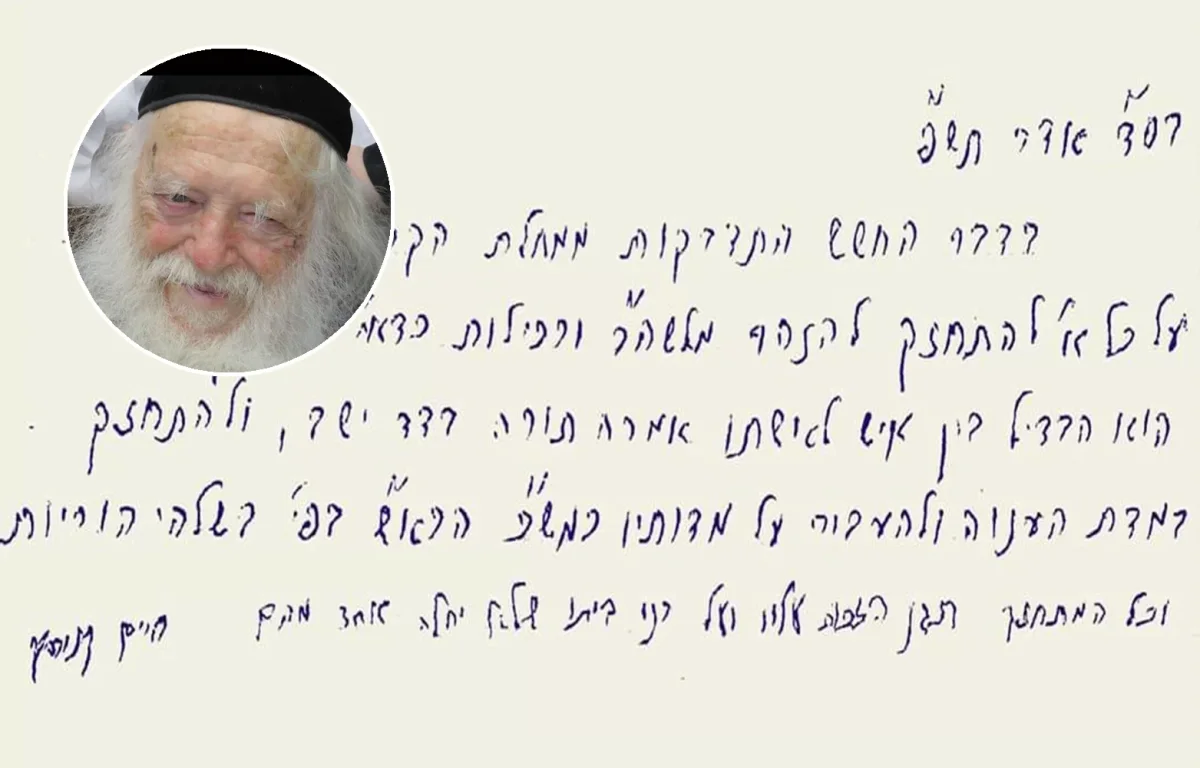 בס"ד אדר תש"פ
בדבר החשש התדבקות ממחלת
על כל א' להתחזק להזהר מלשה"ר ורכילות
הוא הבדיל בין איש לאישתו אמרה תורה בדד ישב, ולהתחזק
במדת הענוה ולהעביר על מדותיו כמש"כ הרא"ש בפי' בשלהי הוריות
וכל המתחזק תגן הזכות עליו ועל בני ביתו שלא יחלה אחד מהם חיים